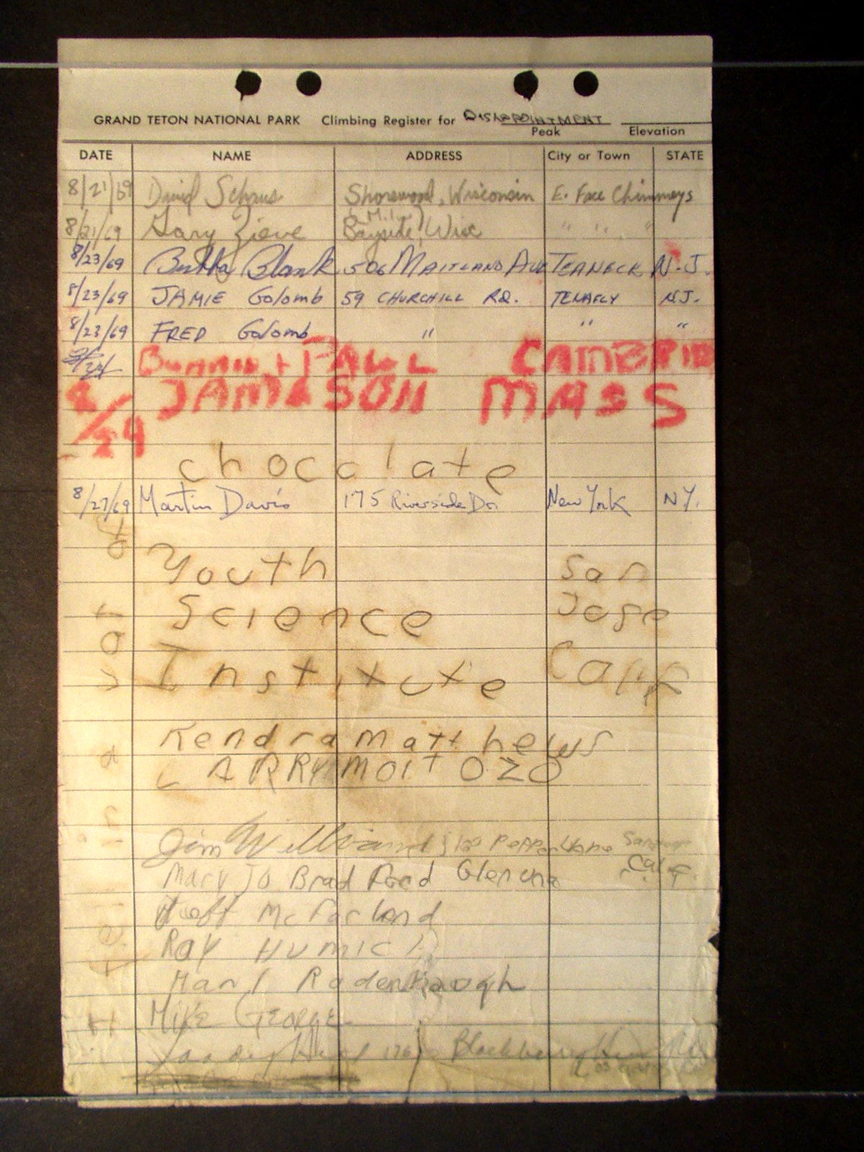 GRAND TETON NATIONAL PARK Climbing Register for DISAPPOINTMENT
Peak Elevation
DATE NAME ADDRESS City or Town STATE
8/21/69 David Schaus Shorewood, Wisconsin E. Face Chimneys
8/21/69 Gary Zieve Bayside, Wisc " " "
8/23/69 Blank 506 MAITLAND AVE TEANECK N.J.
8/23/69 JAMIE Golomb 59 CHURCHILL RD. TENAFLY N.J.
8/23/69 FRED Golomb " " "
+ PAUL CAMBRID
8/24 JAMESON MASS
chocolate
8/27/69 Martin Davis 175 Riverside Dr. New York NY.
Youth San
Science Jose
Institute Calif
Kendra Matthews
LARRY MOITOZO
Jim Williams
Mary Jo Brad Ford
Jeff McFarland
Ray
Radenbaugh
Mike George
I fell in a vat of